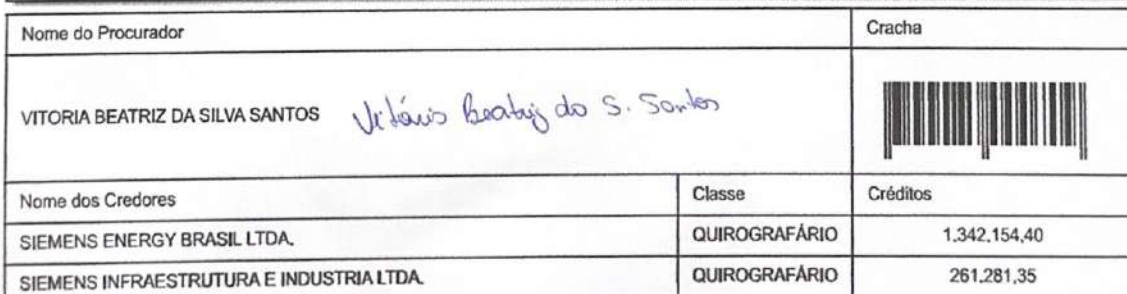 Nome do Procurador Cracha
VITORIA BEATRIZ DA SILVA SANTOS Vitória Beatriz da S. Santos
Nome dos Credores Classe Créditos
SIEMENS ENERGY BRASIL LTDA. QUIROGRAFÁRIO 1.342.154,40
SIEMENS INFRAESTRUTURA E INDUSTRIA LTDA. QUIROGRAFÁRIO 261.281,35